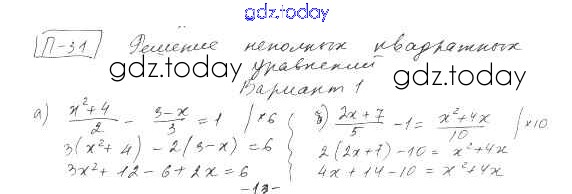 gdz.today
П-31 Решение неполных квадратных
gdz.today уравнений gdz.today
Вариант 1
а) (x²+4)/2 - (3-x)/3 = 1 |×6
3(x²+4) - 2(3-x) = 6
3x² + 12 - 6 + 2x = 6
б) (2x+7)/5 - 1 = (x²+4x)/10 |×10
2(2x+7) - 10 = x²+4x
4x + 14 - 10 = x²+4x